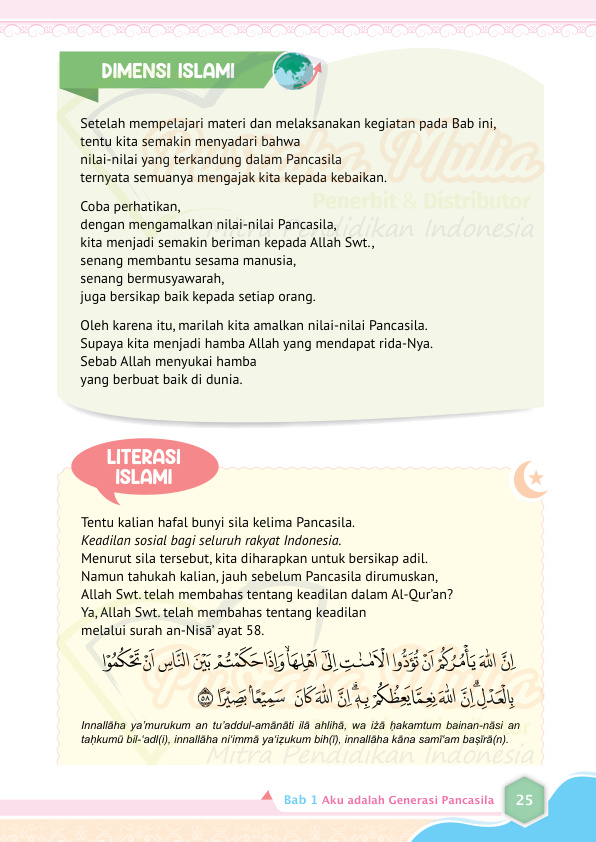 DIMENSI ISLAMI
Setelah mempelajari materi dan melaksanakan kegiatan pada Bab ini,
tentu kita semakin menyadari bahwa
nilai-nilai yang terkandung dalam Pancasila
ternyata semuanya mengajak kita kepada kebaikan.
Coba perhatikan,
dengan mengamalkan nilai-nilai Pancasila,
kita menjadi semakin beriman kepada Allah Swt.,
senang membantu sesama manusia,
senang bermusyawarah,
juga bersikap baik kepada setiap orang.
Oleh karena itu, marilah kita amalkan nilai-nilai Pancasila.
Supaya kita menjadi hamba Allah yang mendapat rida-Nya.
Sebab Allah menyukai hamba
yang berbuat baik di dunia.
Penerbit & Distributor
Mitra Pendidikan Indonesia
LITERASI
ISLAMI
Tentu kalian hafal bunyi sila kelima Pancasila.
Keadilan sosial bagi seluruh rakyat Indonesia.
Menurut sila tersebut, kita diharapkan untuk bersikap adil.
Namun tahukah kalian, jauh sebelum Pancasila dirumuskan,
Allah Swt. telah membahas tentang keadilan dalam Al-Qur’an?
Ya, Allah Swt. telah membahas tentang keadilan
melalui surah an-Nisā’ ayat 58.
اِنَّ اللّٰهَ يَأْمُرُكُمْ اَنْ تُؤَدُّوا الْاَمٰنٰتِ اِلٰٓى اَهْلِهَاۙ وَاِذَا حَكَمْتُمْ بَيْنَ النَّاسِ اَنْ تَحْكُمُوْا
بِالْعَدْلِۗ اِنَّ اللّٰهَ نِعِمَّا يَعِظُكُمْ بِهٖۗ اِنَّ اللّٰهَ كَانَ سَمِيْعًاۢ بَصِيْرًا ٥٨
Innallāha ya’murukum an tu’addul-amānāti ilā ahlihā, wa iżā ḥakamtum bainan-nāsi an
taḥkumū bil-‘adl(i), innallāha ni‘immā ya‘iẓukum bih(ī), innallāha kāna samī‘am baṣīrā(n).
Mitra Pendidikan Indonesia
Bab 1 Aku adalah Generasi Pancasila
25